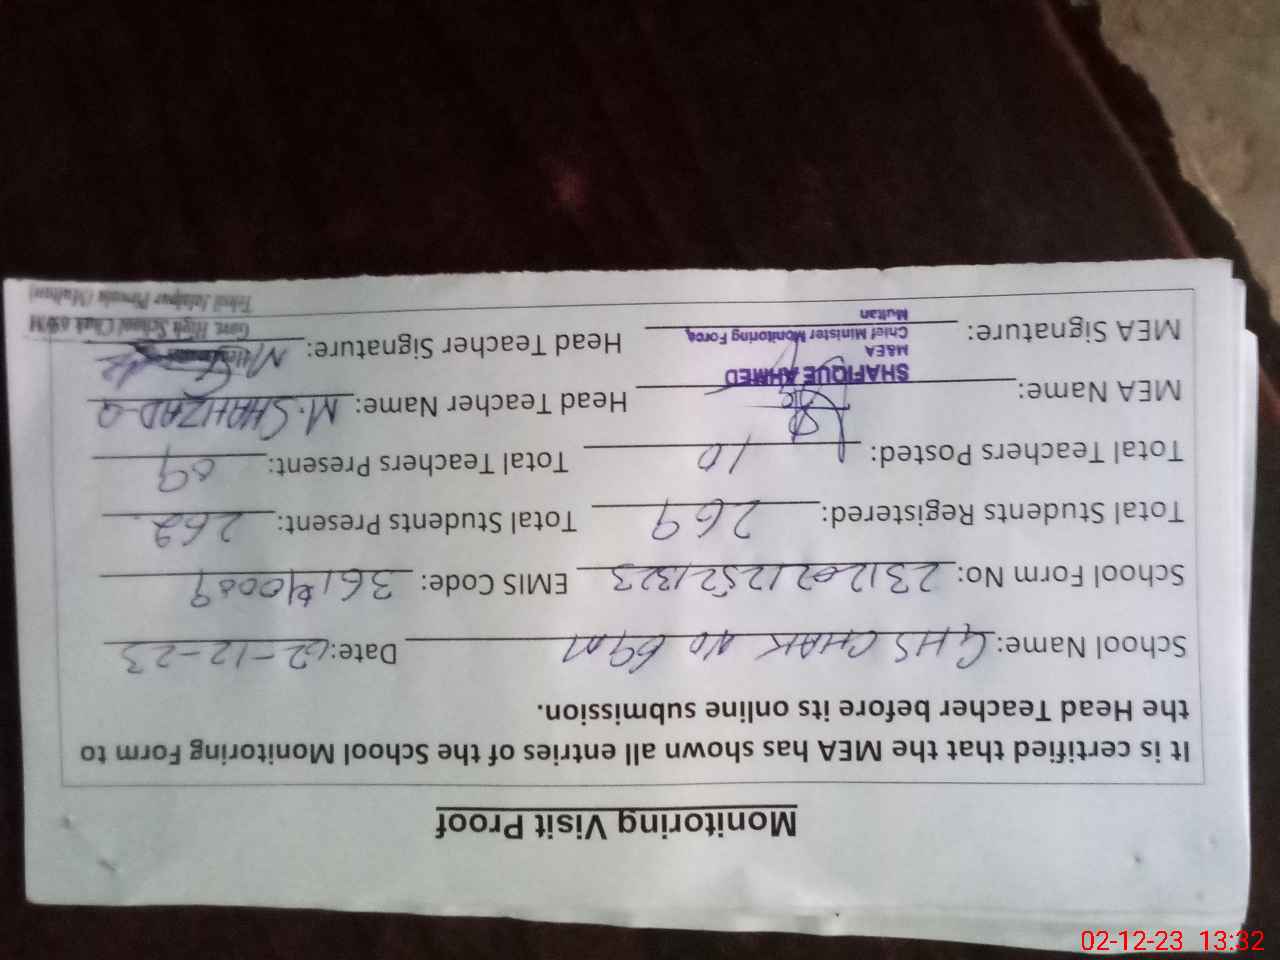 Monitoring Visit Proof
It is certified that the MEA has shown all entries of the School Monitoring Form to
the Head Teacher before its online submission.
School Name: GHS CHAK NO 69M Date: 02-12-23
School Form No: EMIS Code:
Total Students Registered: 269 Total Students Present: 262
Total Teachers Posted: 10 Total Teachers Present: 09
MEA Name: SHAFIQUE AHMED Head Teacher Name: M. SHAHZAD-Q
M&EA
Chief Minister Monitoring Force,
Multan
MEA Signature: Head Teacher Signature:
Govt. High School Chak 69/M
Tehsil Jalalpur Pirwala (Multan)
02-12-23 13:32